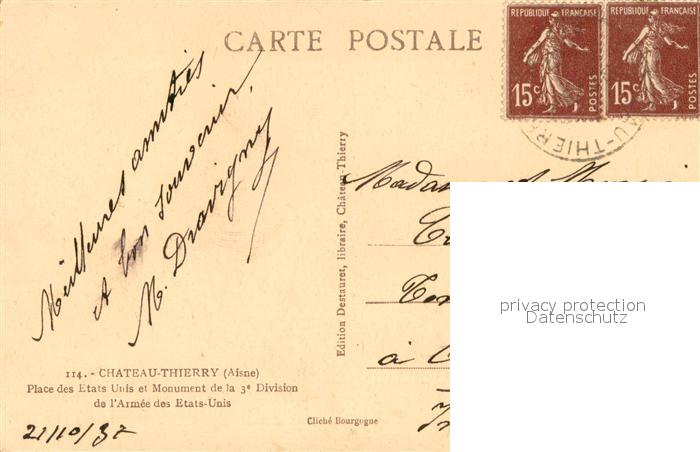 CARTE POSTALE
REPUBLIQUE FRANÇAISE
15c
POSTES
REPUBLIQUE FRANÇAISE
15c
POSTES
U-THIER
Meilleures amitiés
A bon souvenir,
M. Dravigny
Edition Destauret, libraire, Château-Thierry
à
privacy protection
Datenschutz
114. - CHATEAU-THIERRY (Aisne)
Place des Etats Unis et Monument de la 3e Division
de l'Armée des Etats-Unis
Cliché Bourgogne
21/10/37